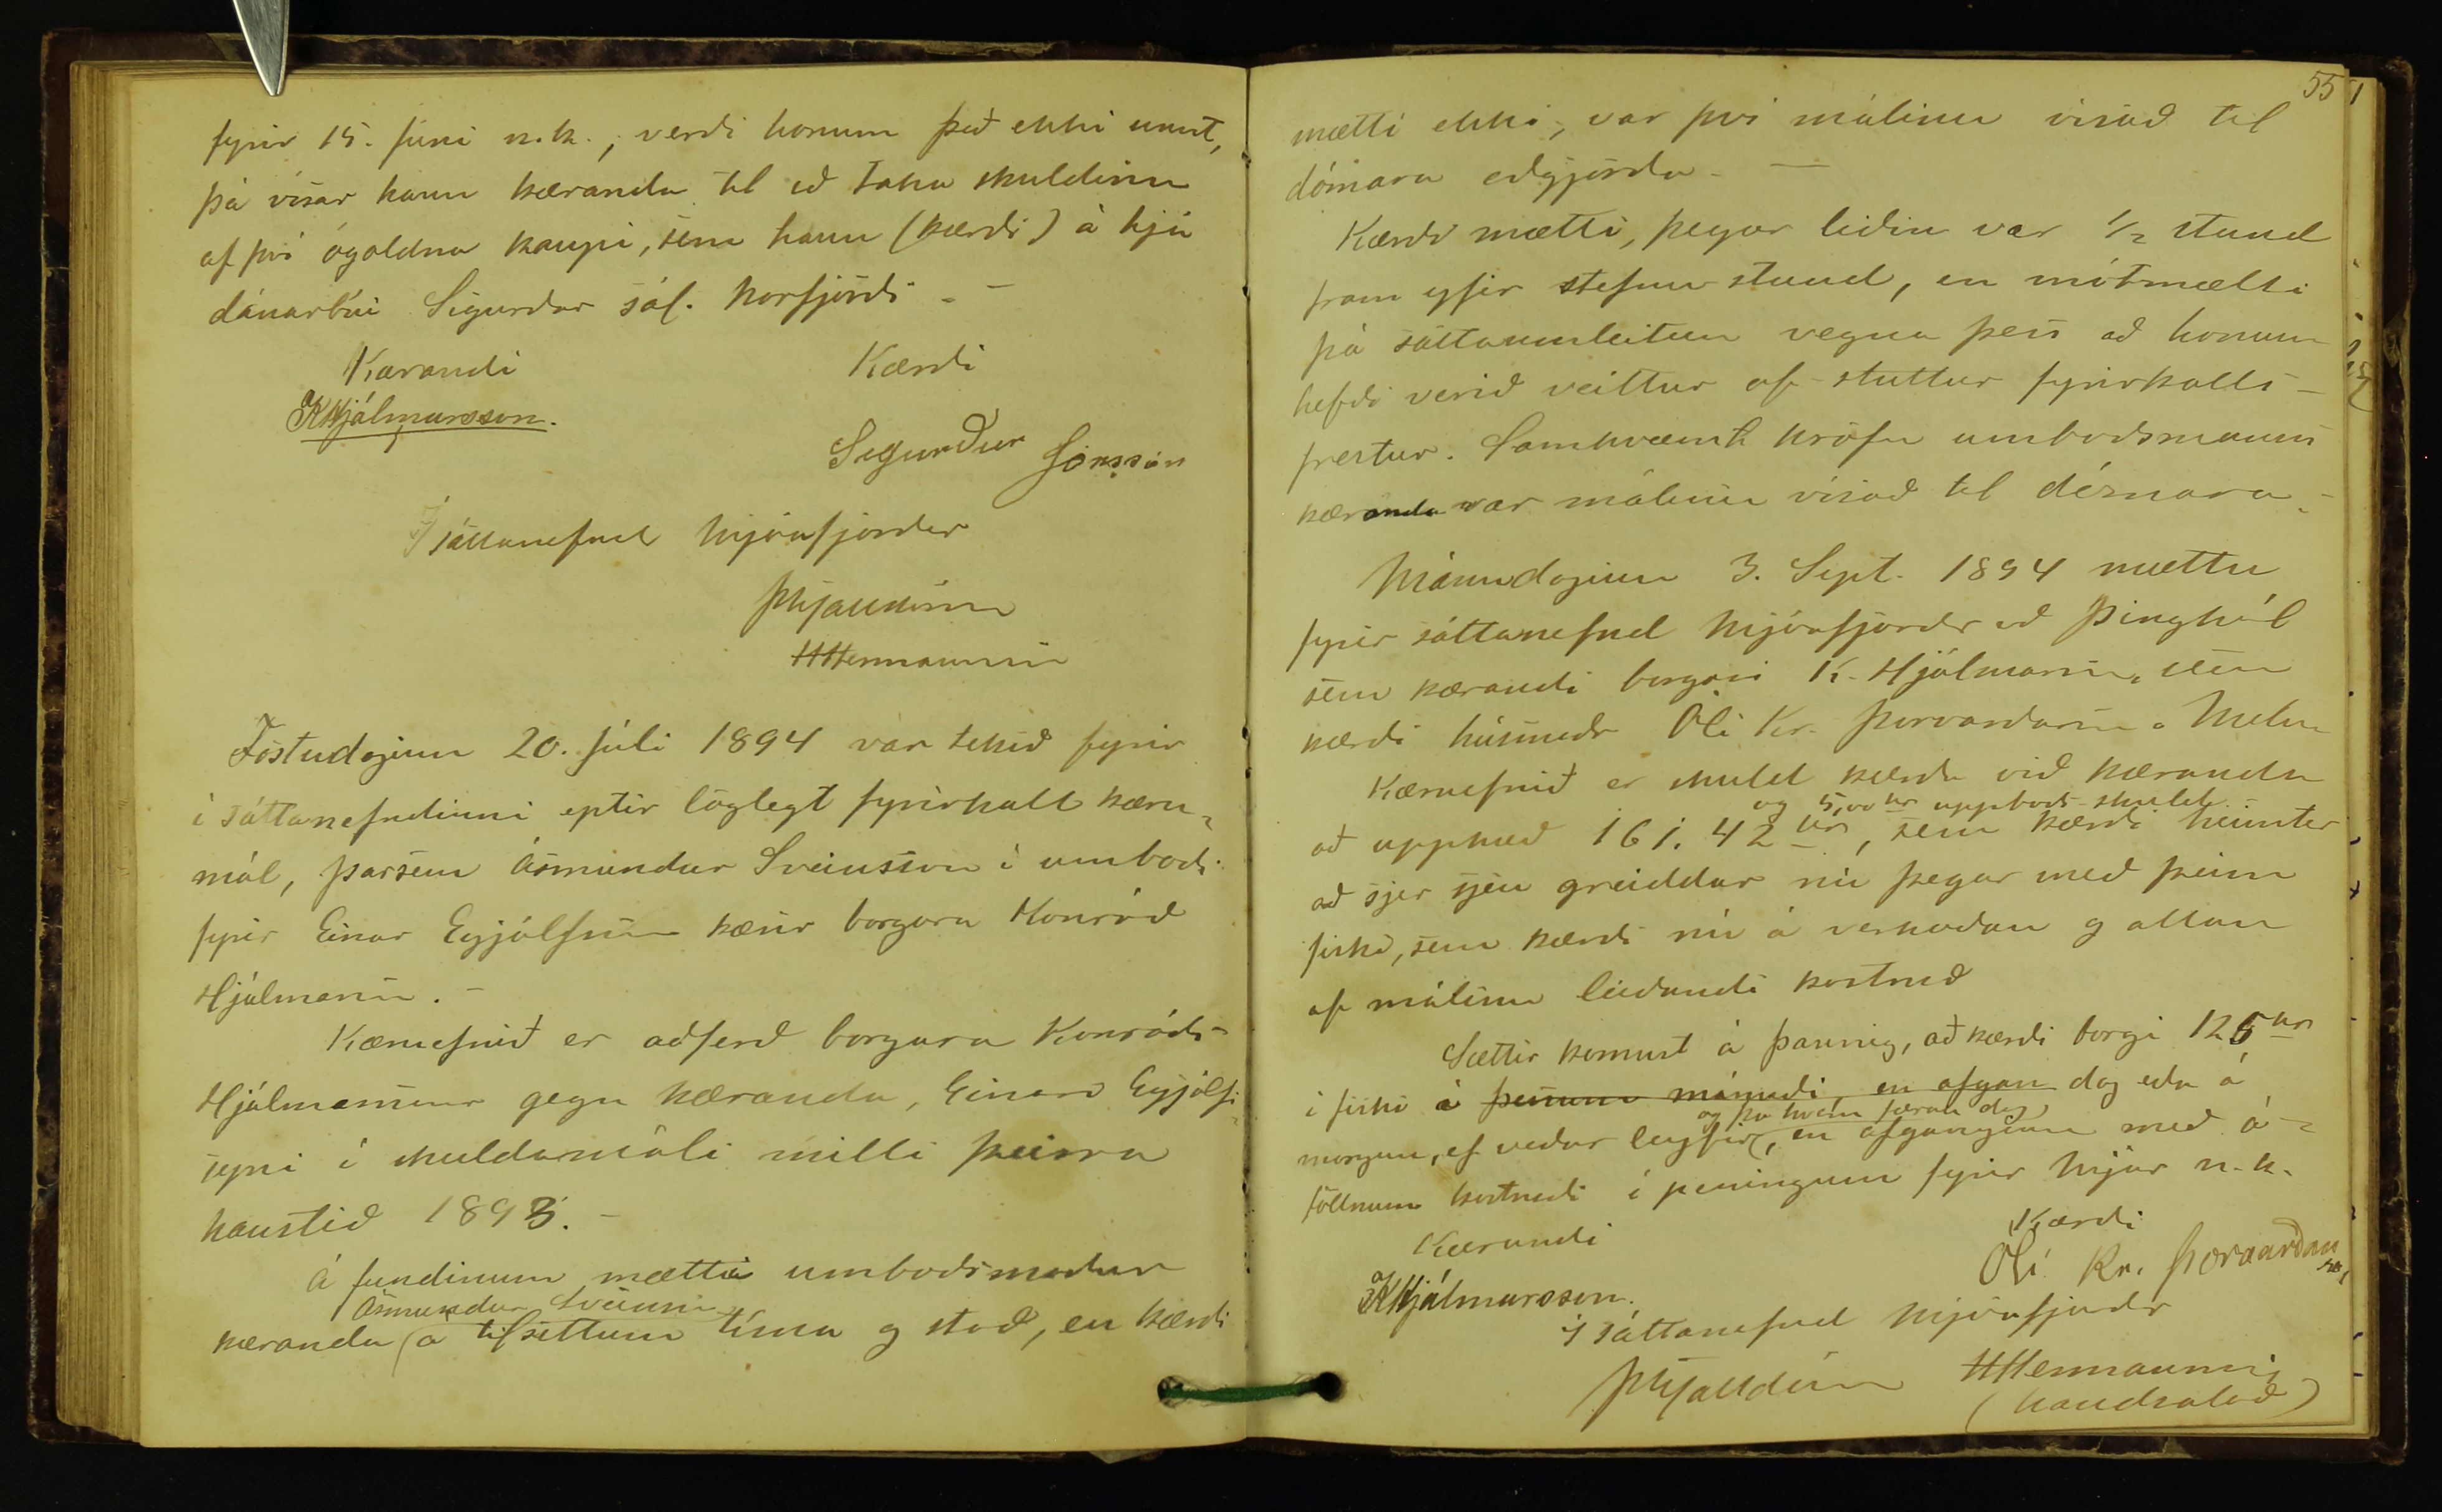 fyrir 15. júní n.k., verði honum það ekki unnt,
þá vísar hann kæranda til að taka skuldina
af því ógoldna kaupi, sem hann (kærði) á hjá
dánarbúi Sigurðar sál. Norfjörð. –
Kærandi Kærði
KHjálmarsson.
Sigurður Jónsson
Í sáttanefnd Mjóafjarðar
HHermannsson
Föstudaginn 20. júlí 1894 var tekið fyrir
í sáttanefndinni eptir löglegt fyrirkall kæru-
mál, þarsem Ásmundur Sveinsson í umboði
fyrir Einar Eyjólfsson kærir borgara Konráð
Hjálmarsson. –
Kæruefnið er aðferð borgara Konráðs
Hjálmarssonar gegn kæranda, Einari Eyjólfs-
syni í skuldamáli milli þeirra
haustið 1893. –
Á fundinum mætti umboðsmaður
Ásmundur Sveinsson
kæranda á tilsettum tíma og stað, en kærði
55
mætti ekki, var því málinu vísað til
dómara aðgjörða. –
Kærði mætti, þegar liðin var 1/2 stund
fram yfir stefnu stund, en mótmælti
þá sáttaumleitun vegna þess að honum
hefði verið veittur of stuttur fyrirkalls-
frestur. Samkvæmt kröfu umboðsmanns
kæranda var málinu vísað til dómara.
Mánudaginn 3. Sept. 1894 mættu
fyrir sáttanefnd Mjóafjarðar að Þinghól
sem kærandi borgari K. Hjálmarsson, sem
kærði húsmaðr Óli Kr. Þorvarðarson á Melum
Kæruefnið er skuld kærða við kæranda
og 5,00 kr uppboðs-skuld
að upphæð 161.42 kr, sem kærði heimtar
að sjer sjeu greiddar nú þegar með þeim
fiski, sem kærði nú á verkaðan og allan
af málinu leiðandi kostnað
Sættir komust á þannig, að kærði borgi 125 kr
í fiski á þessum mánuði en afgan dag eða á
og þá hvern færan dag
morgun, ef veður leyfir, en afganginn með á-
föllnum kostnaði í peningum fyrir Mjóa n.k.
Kærandi Kærði
KHjálmarsson. Óli Kr. Þorvarðarson
Í sáttanefnd Mjóafjarðar
HHermannsson
(handsalað)